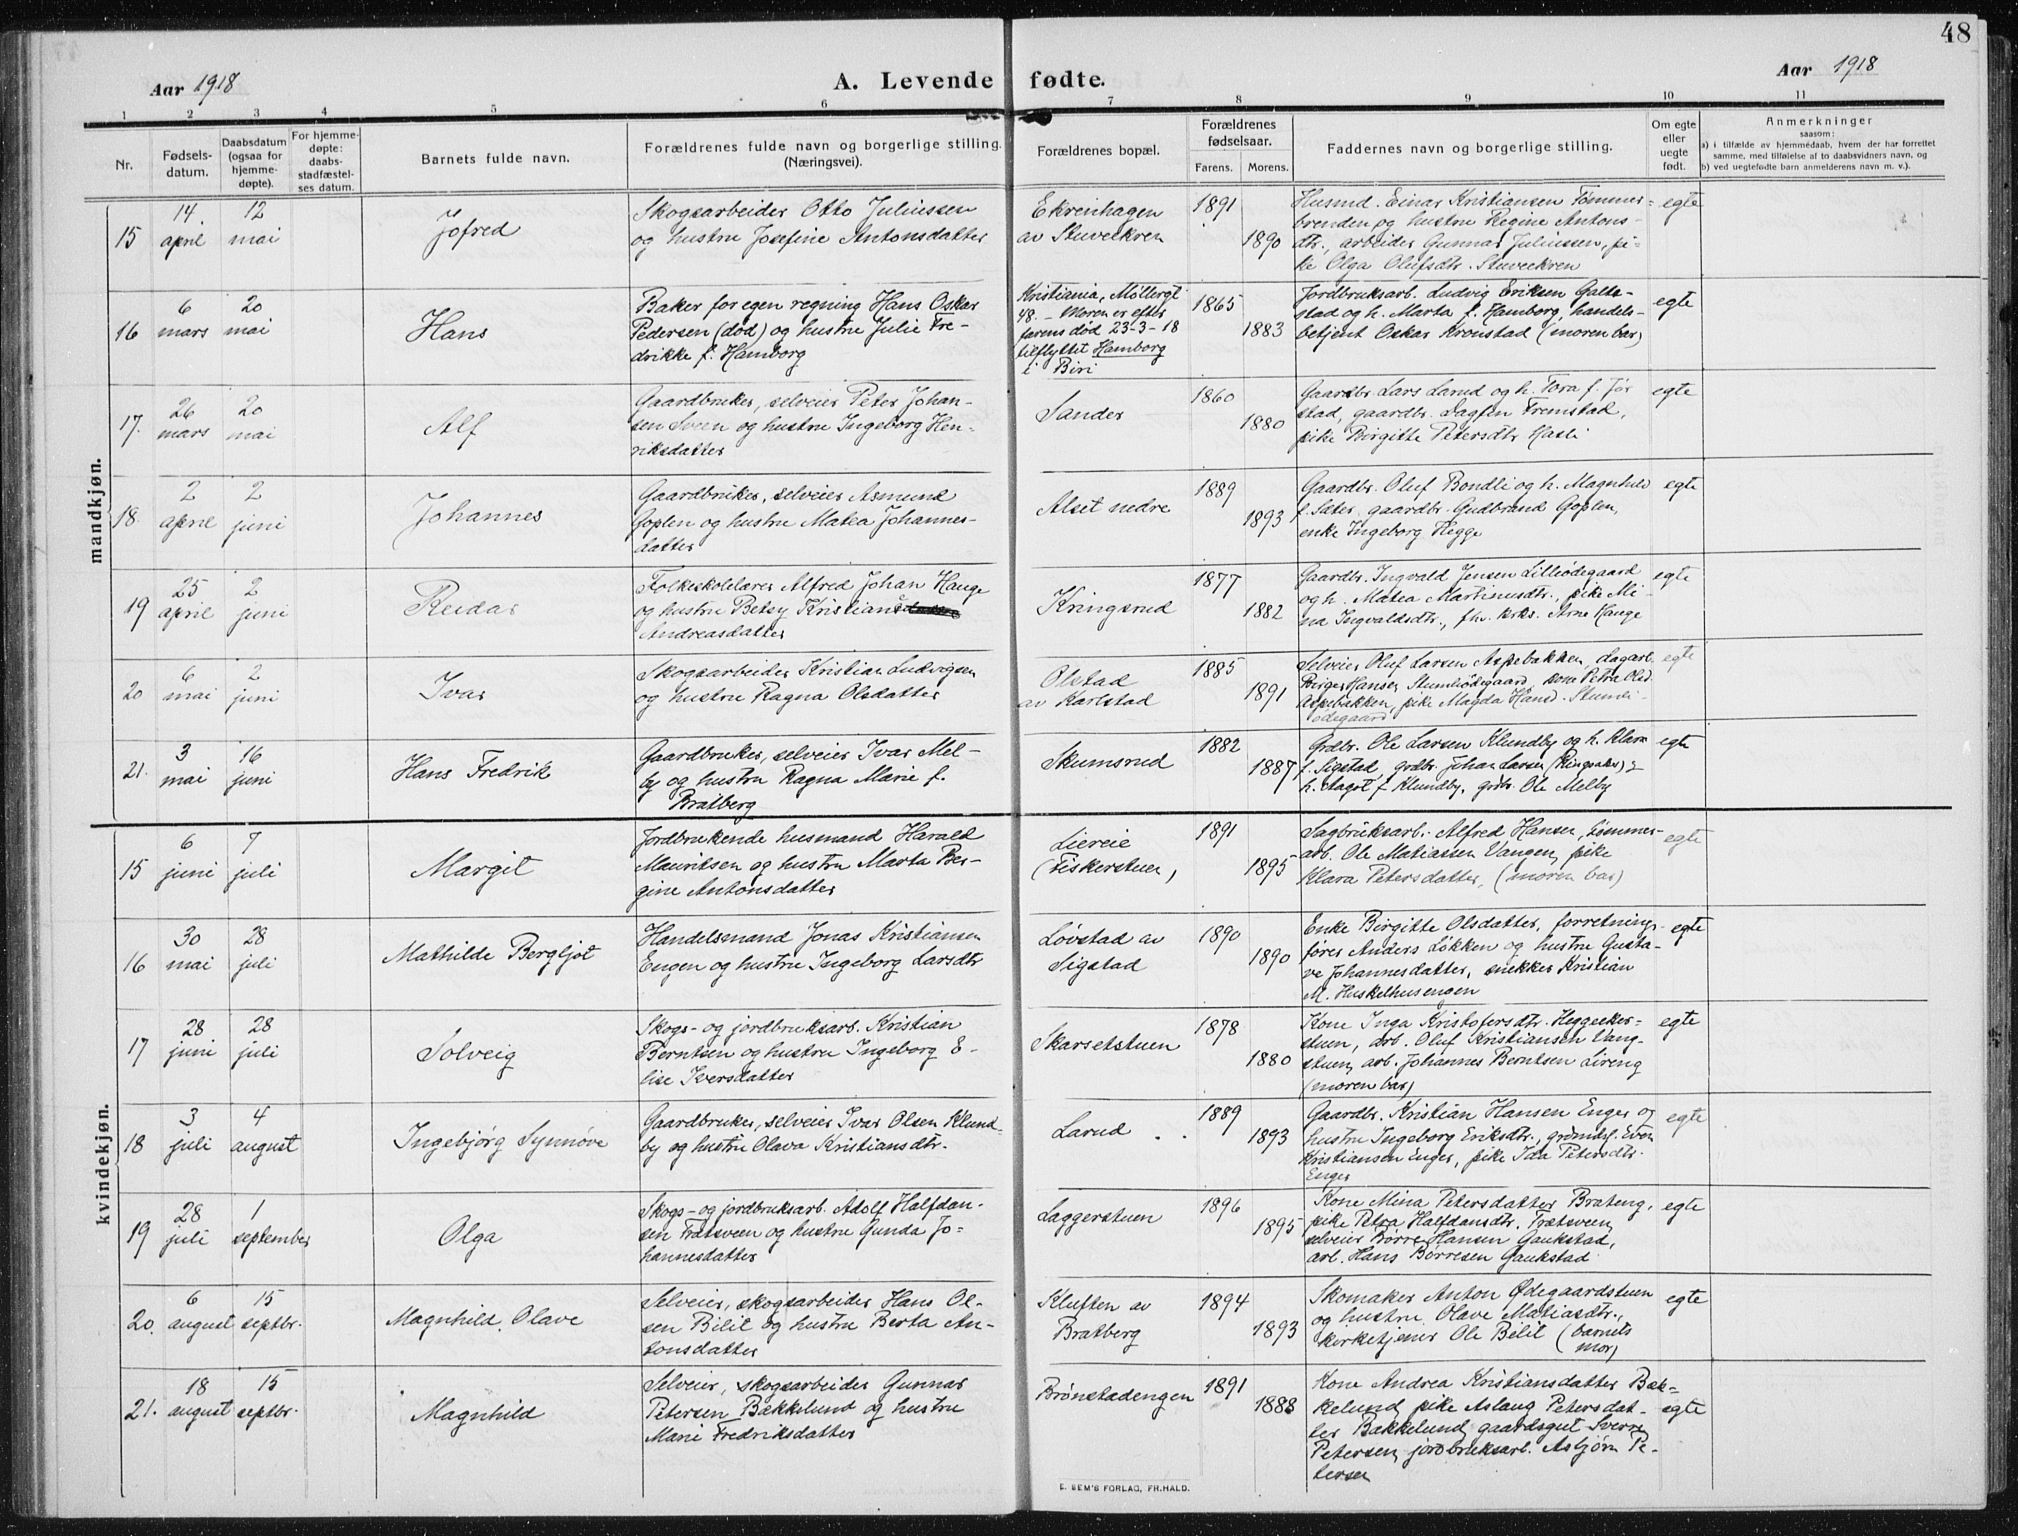 48
Aar 1918
A. Levende fødte.
Aar 1918
1 2 3 4 5 6 7 8 9 10 11
Nr.
Fødsels-
datum.
Daabsdatum
(ogsaa for
hjemme-
døpte).
For hjemme-
døpte:
daabs-
stadfæstel-
ses datum.
Barnets fulde navn.
Forældrenes fulde navn og borgerlige stilling.
(Næringsvei).
Forældrenes bopæl.
Forældrenes
fødselsaar.
Farens. Morens.
Faddernes navn og borgerlige stilling.
Om egte
eller
uegte
født.
Anmerkninger
saasom:
a) i tilfælde av hjemmedaab, hvem der har forrettet
samme, med tilføielse af to daabsvidners navn, og
b) ved uegtefødte barn anmelderens navn m. v.).
mandkjøn.
15
14
april
12
mai
Jofred
Skogsarbeider Otto Juliussen
og hustru Josefine Antonsdatter
Ekrenhagen
av Stuveekren
1891
1890
Husmd. Einar Kristiansen Tømmer-
brenden og hustru Regine Antons-
dtr., arbeider Gunnar Juliussen, pi-
ke Olga Olufsdtr. Stuveekren
egte
16
6
mars
20
mai
Hans
Baker for egen regning Hans Oskar
Pedersen (død) og hustru Julie Fre-
drikke f. Hamborg
Kristiania, Møllergt
48. - Moren er efter
farens død 23-3-18
tilflyttet Hamborg
i Biri
1865
1883
Jordbruksarb. Ludvig Eriksen Galte-
stad og h. Marta f. Hamborg, handels-
betjent Oskar Kronstad (moren bar)
egte
17.
26
mars
20
mai
Alf
Gaardbruker, selveier Peter Johan-
sen Sveen og hustru Ingeborg Hen-
riksdatter
Sander
1860
1880
Gaardbr. Lars Larud og h. Tora f.
stad, gaardbr. Dagfin Fremstad,
pike Birgitte Petersdtr Hasli
egte
18.
2
april
2
juni
Johannes
Gaardbruker, selveier Asmund
Goplen og hustru Matea Johannes-
datter
Alset nedre
1889
1893
Gaardbr. Oluf Bondli og h. Magnhild
f. Sæter, gaardbr. Gudbrand Goplen,
enke Ingeborg Hegge
egte
19
25
april
2
juni
Reidar
Folkeskolelærer Alfred Johan Hauge
og hustru Betsy Kristians
Andreasdatter
Kringsrud
1877
1882
Gaardbr. Ingvald Jensen Lilleødegaard
og h. Matea Martinusdtr., pike Mi-
na Ingvaldsdtr., fhv. krks. Arne Hauge
egte
20
6
mai
2
juni
Ivar
Skogsarbeider Kristian Ludvigsen
og hustru Ragna Olsdatter
Olstad
av Karlstad
1885
1891
Selveier Oluf Larsen Aspebakken, dagarb.
Birger Hansen Stumliødegaard, kone Petra Olsd.
Aspebakken, pike Magda Hansd. Stumli-
ødegaard
egte
21.
3
mai
16
juni
Hans Fredrik
Gaardbruker, selveier Ivar Mel-
by og hustru Ragna Marie f.
Bratberg
Skumsrud
1882
1887
Grdbr. Ole Larsen Klundby og h. Klara
f. Sigstad, grdbr. Johan Larsen
h. Aagot f Klundby, grdbr. Ole Melby
egte
kvindekjøn.
15
6
juni
7
juli
Margit
Jordbrukende husmand Harald
Mauritsen og hustru Marta Ber-
gine Antonsdatter
Liereie
(Fiskerstuen)
1891
1895
Sagbruksarb. Alfred Hansen, tømmer-
arb. Ole Matiassen Vangen, pike
Klara Petersdatter, (moren bar)
egte
16
30
mai
28
juli
Mathilde Bergljot
Handelsmand Jonas Kristiansen
Engen og hustru Ingeborg Larsdtr
Løvstad av
Sigstad
1890
1890
Enke Birgitte Olsdatter, forretnings-
fører Anders Løkken og hustru Gusta-
ve Johannesdatter, snekker Kristian
M. Huskelhusengen
egte
17
28
juni
28
juli
Solveig
Skogs- og jordbruksarb. Kristian
Berntsen og hustru Ingeborg E-
lise Iversdatter
Skarsetstuen
1878
1880
Kone Inga Kristofersdtr. Heggeeker-
stuen, arb. Oluf Kristiansen Vang-
stuen, arb. Johannes Berntsen Lireng
(moren bar)
egte
18
3
juli
4
august
Ingebjørg Synnøve
Gaardbruker, selveier Ivar Olsen Klund-
by og hustru Olava Kristiansdtr.
Larud
1889
1893
Gaardbr. Kristian Hansen Enger og
hustru Ingeborg Eriksdtr., grdmdsf. Even
Kristiansen Enger, pike Ida Petersdtr.
Enger
egte
19
28
juli
1
september
Olga
Skogs- og jordbruksarb. Adolf Halfdan-
sen Frætsveen og hustru Gunda Jo-
hannesdatter
Laggerstuen
1896
1895
Kone Mina Petersdatter Brateng,
pike Petra Halfdansdtr. Frætsveen,
selveier Børre Hansen Gaukstad,
arb. Hans Børresen Gaukstad
egte
20.
6
august
15
septbr.
Magnhild Olave
Selveier, skogsarbeider Hans Ol-
sen Bilit og hustru Berta An-
tonsdatter
Kluften av
Bratberg
1894
1893
Skomaker Anton Ødegaardstuen
og hustru Olave Matiasdtr.,
kirketjener Ole Bilit (barnets
mor)
egte
21.
18
august
15
septbr.
Magnhild
Selveier, skogsarbeider Gunnar
Petersen Bækkelund og hustru
Marie Fredriksdatter
Brønstadengen
1891
1888
Kone Andrea Kristiansdatter Bæk-
kelund, pike Aslaug Petersdat-
ter Bakkelund, gaardsgut Sverre
Petersen, jordbruksarb. Asbjørn Pe-
tersen
egte
E. SEM'S FORLAG, FR.HALD.